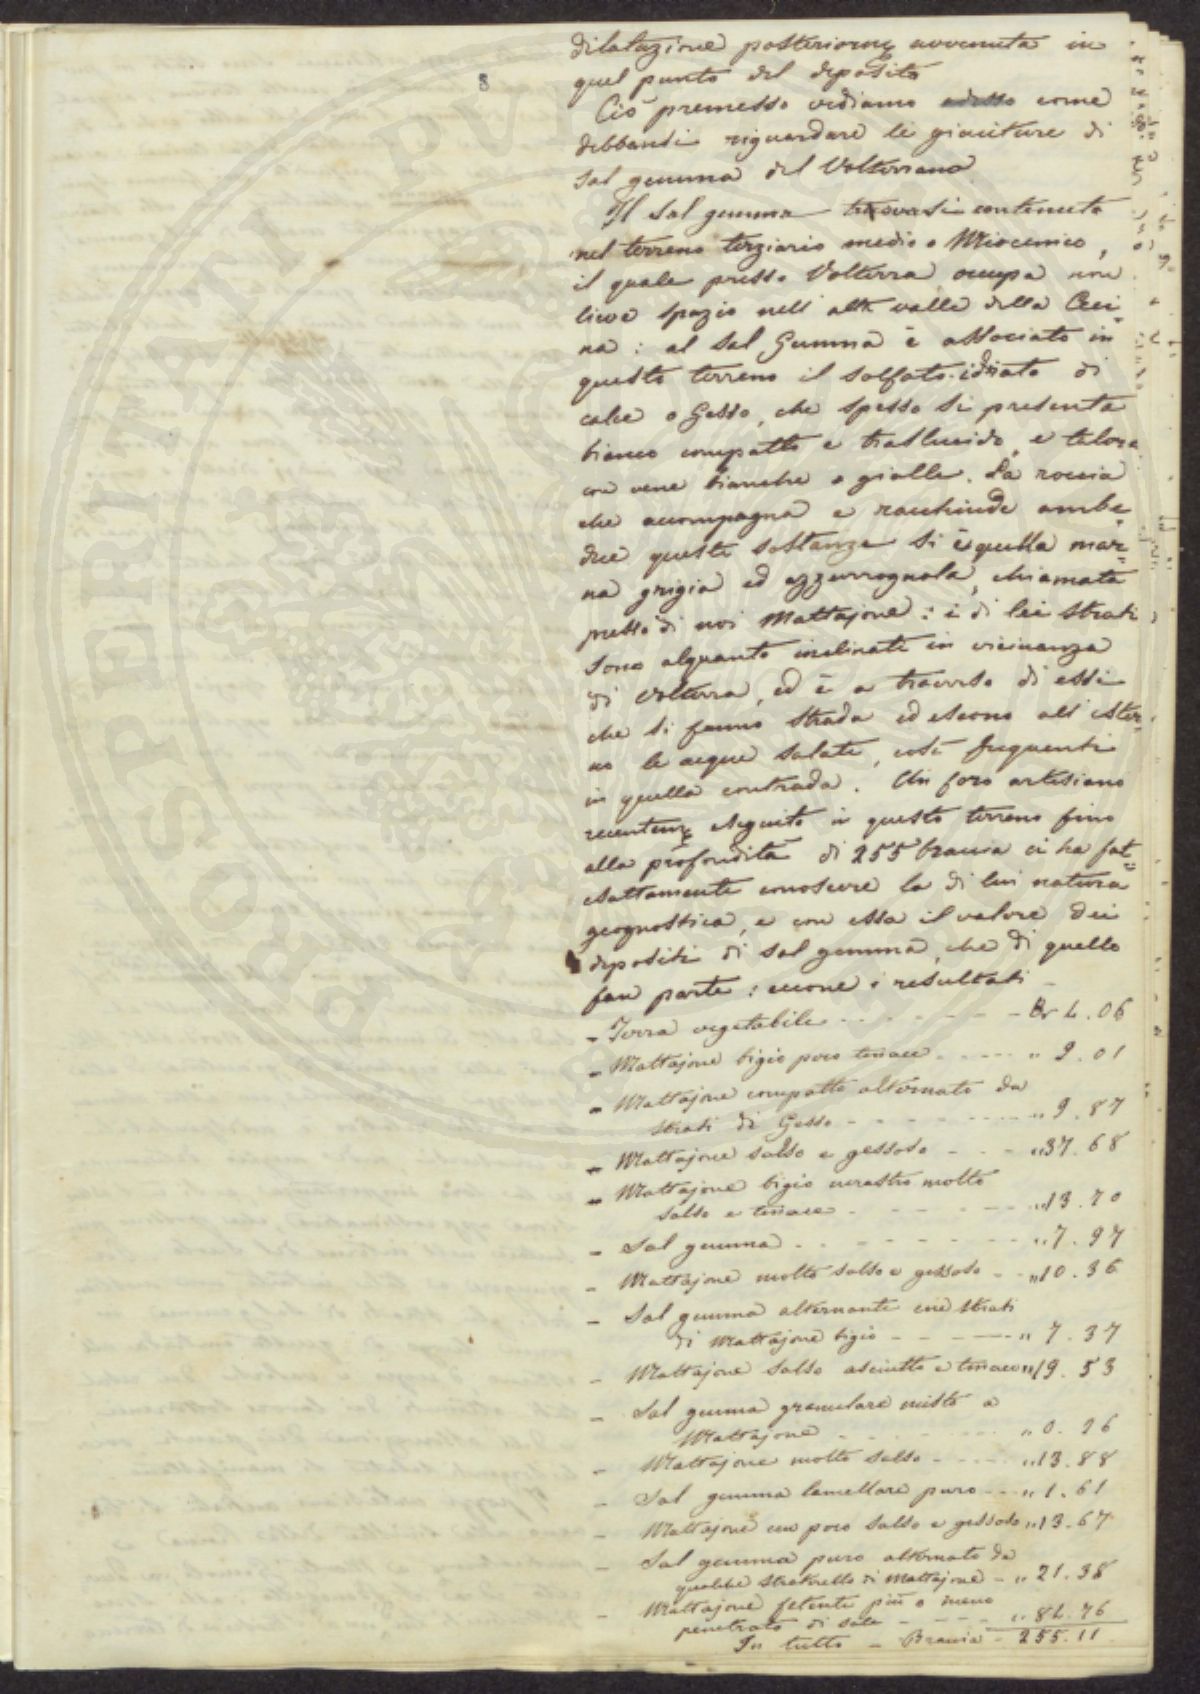 8
dilatazione posteriorme avvenuta in
quel punto del deposito
Ciò premesso vediamo adesso come
debbansi riguardare le giaciture di
sal gemma del Volterrano
Il sal gemma trovasi contenuto
nel terreno terziario medio o Miocenico,
il quale presso Volterra occupa non
lieve spazio nell'alta valle della Ceci=
na: al sal Gemma è associato in
questo terreno il solfato idrato di
calce o Gesso, che spesso si presenta
bianco compatto e traslucido, e talora
con vene bianche o gialle. La roccia
che accompagna e racchiude ambe=
due queste sostanze si è quella mar=
na grigia ed azzurrognola, chiamata
presso di noi Mattajone: i di lei strati
sono alquanto inclinati in vicinanza
di Volterra, ed è a traverso di essi
che si fanno strada ed escono all'ester=
no le acque salate, così frequenti
in quella contrada. Un foro artesiano
recenteme eseguito in questo terreno fino
alla profondità di 255 braccia ci ha fat=
esattamente conoscere la di lui natura
geognostica, e con essa il valore dei
depositi di sal gemma, che di quello
fan parte: eccone i resultati
- Terra vegetabile - - - - - - - Br 4.06
- Mattajone bigio poco tenace - - - - " 9.01
- Mattajone compatto alternato da
strati di Gesso - - - - - - - " 9.87
- Mattajone salso e gessoso - - - " 37.68
- Mattajone bigio nerastro molto
salso e tenace - - - - - - " 13.70
- Sal gemma - - - - - - - " 7.97
- Mattajone molto salso e gessoso - - " 10.36
- Sal gemma alternante con strati
di Mattajone bigio - - - - - " 7.37
- Mattajone salso asciutto e tenace " 19.53
- Sal gemma granulare misto a
Mattajone - - - - - - " 0.26
- Mattajone molto salso - - - - " 13.88
- Sal gemma lamellare puro - - " 1.61
- Mattajone un poco salso e gessoso " 13.67
- Sal gemma puro alternato da
qualche straterello di Mattajone - " 21.38
- Mattajone fetente più o meno
penetrato di sale - - - - " 84.76
In tutto - Braccia - 255.11
PROSPERITATI PV